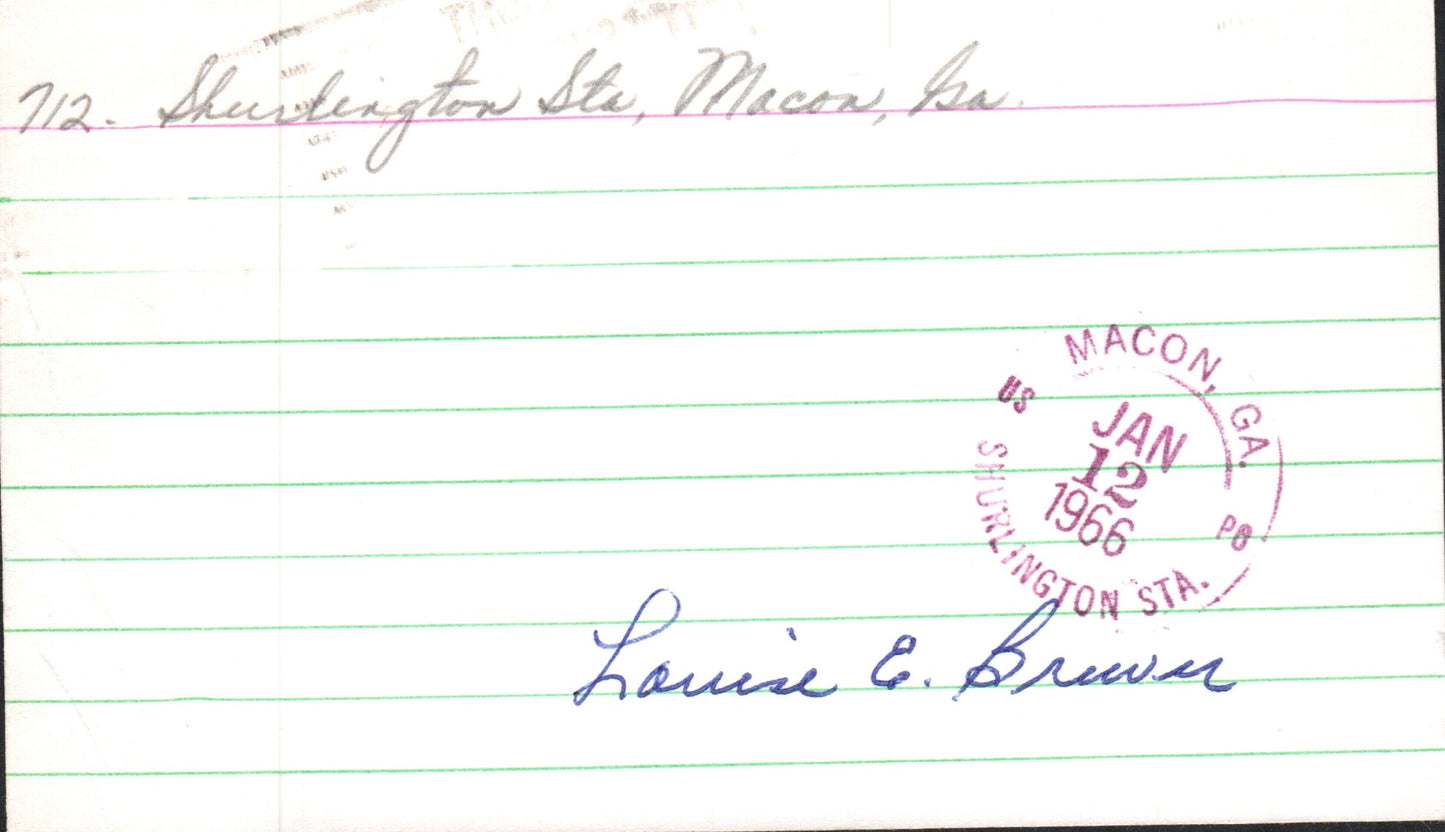 712. Shurlington Sta, Macon, Ga.
MACON, GA.
US
JAN
12
1966
PO
SHURLINGTON STA.
Louise E. Brewer